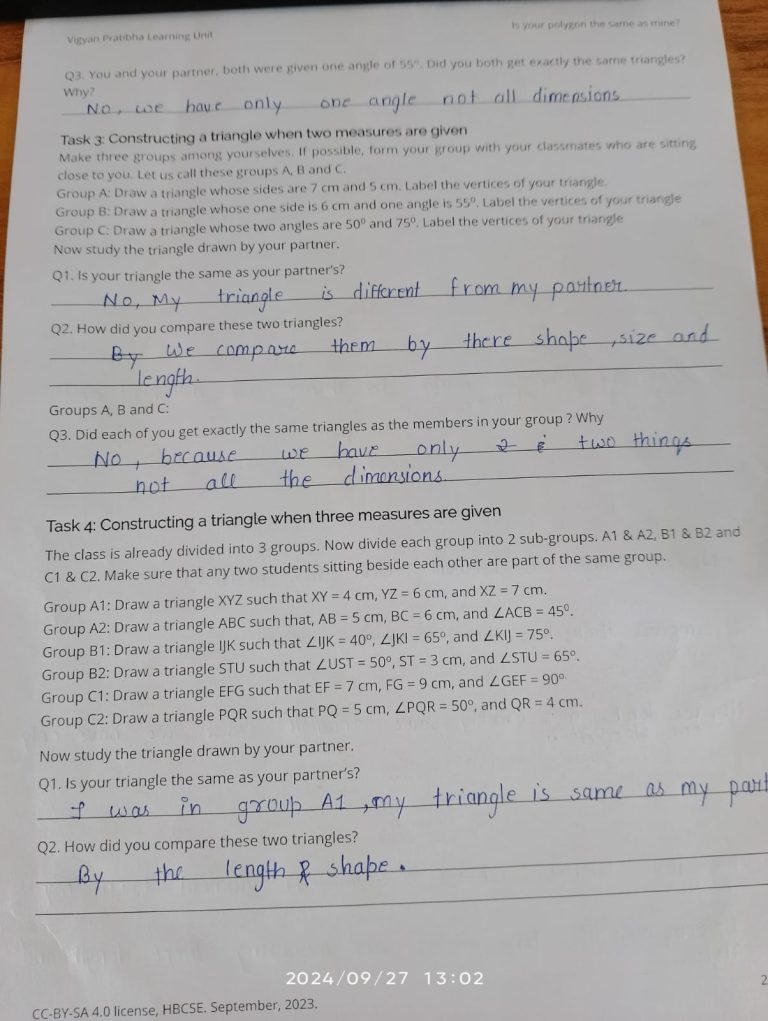 Vigyan Pratibha Learning Unit
Is your polygon the same as mine?
Q3. You and your partner, both were given one angle of 55°. Did you both get exactly the same triangles?
Why?
No, we have only one angle not all dimensions
Task 3: Constructing a triangle when two measures are given
Make three groups among yourselves. If possible, form your group with your classmates who are sitting
close to you. Let us call these groups A, B and C.
Group A: Draw a triangle whose sides are 7 cm and 5 cm. Label the vertices of your triangle.
Group B: Draw a triangle whose one side is 6 cm and one angle is 55⁰. Label the vertices of your triangle
Group C: Draw a triangle whose two angles are 50⁰ and 75⁰. Label the vertices of your triangle
Now study the triangle drawn by your partner.
Q1. Is your triangle the same as your partner's?
No, My triangle is different from my partner.
Q2. How did you compare these two triangles?
By We compare them by there shape, size and
length.
Groups A, B and C:
Q3. Did each of you get exactly the same triangles as the members in your group ? Why
No, because we have only 2 two things
not all the dimensions.
Task 4: Constructing a triangle when three measures are given
The class is already divided into 3 groups. Now divide each group into 2 sub-groups. A1 & A2, B1 & B2 and
C1 & C2. Make sure that any two students sitting beside each other are part of the same group.
Group A1: Draw a triangle XYZ such that XY = 4 cm, YZ = 6 cm, and XZ = 7 cm.
Group A2: Draw a triangle ABC such that, AB = 5 cm, BC = 6 cm, and ∠ACB = 45⁰.
Group B1: Draw a triangle IJK such that ∠IJK = 40⁰, ∠JKI = 65⁰, and ∠KIJ = 75⁰.
Group B2: Draw a triangle STU such that ∠UST = 50⁰, ST = 3 cm, and ∠STU = 65⁰.
Group C1: Draw a triangle EFG such that EF = 7 cm, FG = 9 cm, and ∠GEF = 90⁰.
Group C2: Draw a triangle PQR such that PQ = 5 cm, ∠PQR = 50⁰, and QR = 4 cm.
Now study the triangle drawn by your partner.
Q1. Is your triangle the same as your partner's?
I was in group A1, my triangle is same as my part
Q2. How did you compare these two triangles?
By the length & shape.
2024/09/27 13:02
2
CC-BY-SA 4.0 license, HBCSE. September, 2023.